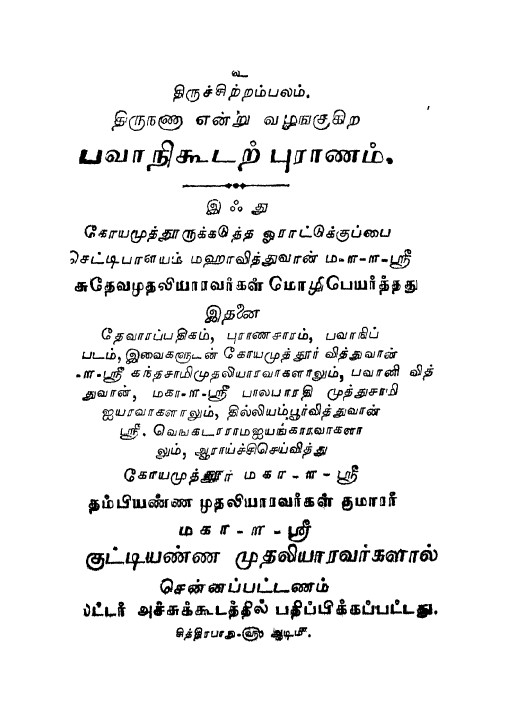 உ
திருச்சிற்றம்பலம்.
திருநணா என்று வழங்குகிற
பவாநிகூடற் புராணம்.
இஃது
கோயமுத்தூருக்கடுத்த ஓராட்டுக்குப்பை
செட்டிபாளயம் மஹாவித்துவான் ம-ள-ள-ஸ்ரீ
சுதேவமுதலியாரவர்கள் மொழிபெயர்த்தது
இதனை
தேவாரப்பதிகம், புராணசாரம், பவாநிப்
படம், இவைகளுடன் கோயமுத்தூர் வித்துவான்
-ள-ஸ்ரீ கந்தசாமிமுதலியாரவர்களாலும், பவானி வித்
துவான், மகா-ள-ஸ்ரீ பாலபாரதி முத்துசாமி
ஐயரவர்களாலும், தில்லியம்பூர்வித்துவான்
ஸ்ரீ. வெங்கடாராமஐயங்காரவர்களா
லும், ஆராய்ச்சிசெய்வித்து
கோயமுத்தூர் மகா-ள-ஸ்ரீ
தம்பியண்ண முதலியாரவர்கள் குமாரர்
மகா-ள-ஸ்ரீ
குட்டியண்ண முதலியாரவர்களால்
சென்னப்பட்டணம்
அச்சுக்கூடத்தில் பதிப்பிக்கப்பட்டது.
சித்திரபாநு ஆடிமீ.